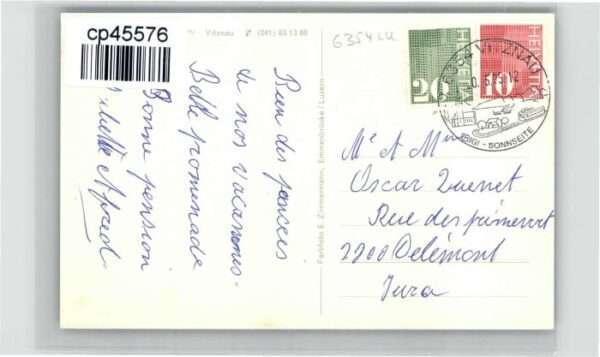 cp45576
Vitznau (041) 83 13 60
6354 LU
HELVETIA
20
HELVETIA
10
6354 VITZNAU
RIGI - SONNSEITE
Bien des pensées
de nos vacances.
Belle promenade
Bonne pension
Juliette Alfred
Farbfoto E. Zimmermann, Emmenbrücke / Luzern
Mr et Mme
Oscar Quenet
Rue des primevert
2800 Delémont
Jura